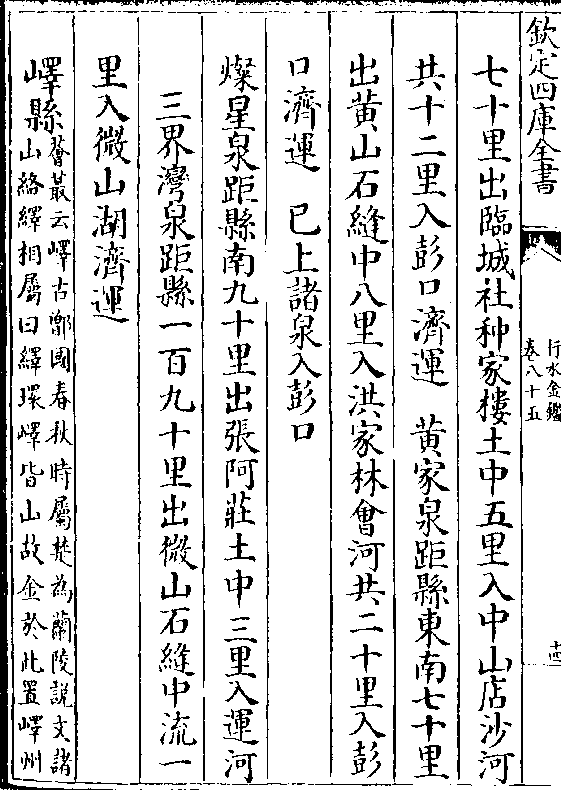 欽定四庫全書
行水金鑑
卷八十五
十四
七十里出臨城社种家樓土中五里入中山店沙河
共十二里入彭口濟運　黄家泉距縣東南七十里
出黄山石縫中八里入洪家林會河共二十里入彭
口濟運　已上諸泉入彭口
燦星泉距縣南九十里出張阿莊土中三里入運河
三界灣泉距縣一百九十里出微山石縫中流一
里入微山湖濟運
嶧縣薈叢云嶧古鄫國春秋時屬楚為蘭陵説文諸
山絡繹相屬曰繹環嶧皆山故金於此置嶧州